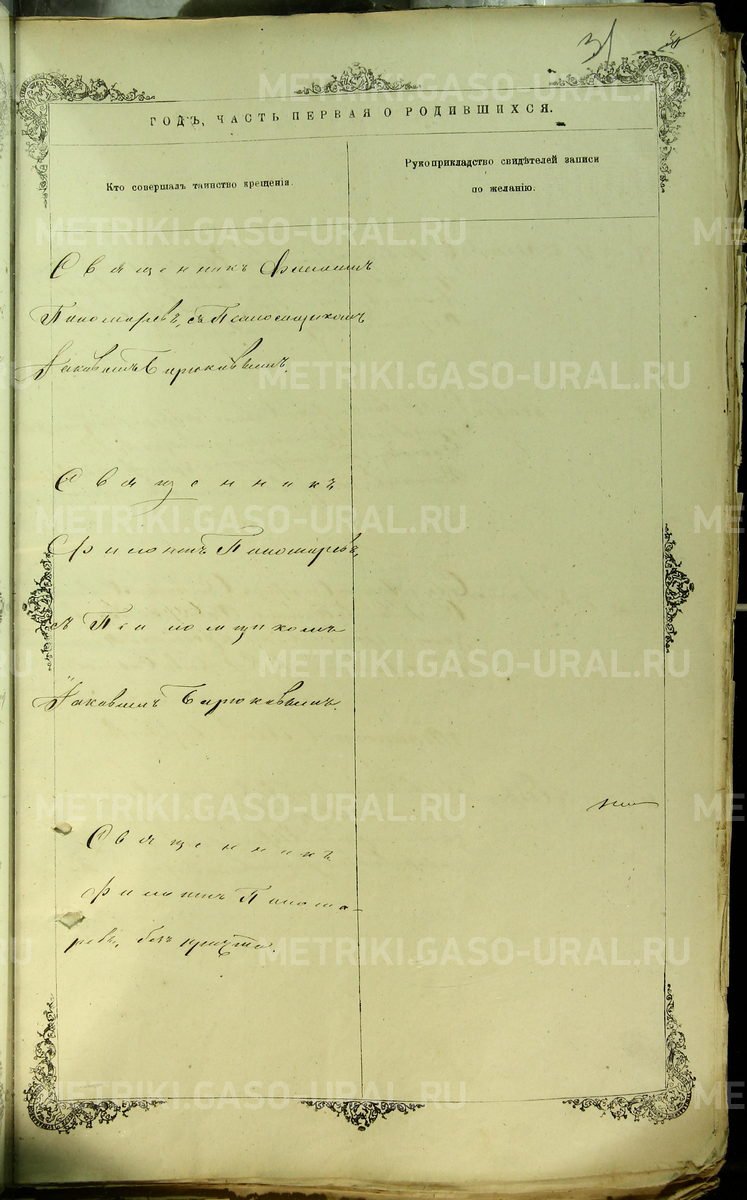 31
METRIKI.GASO-URAL.RU
ГОДЪ, ЧАСТЬ ПЕРВАЯ О РОДИВШИХСЯ.
Кто совершалъ таинство крещенія.
Рукоприкладство свидѣтелей записи
по желанію.
Священникъ Филаппъ
Пономаревъ, съ Псаломщикомъ
Іаковомъ Бирюковымъ.
Священникъ
Пономаревъ,
съ Псаломщикомъ
Іаковомъ Бирюковымъ.
Священникъ
Понома-
ревъ, безъ причта.